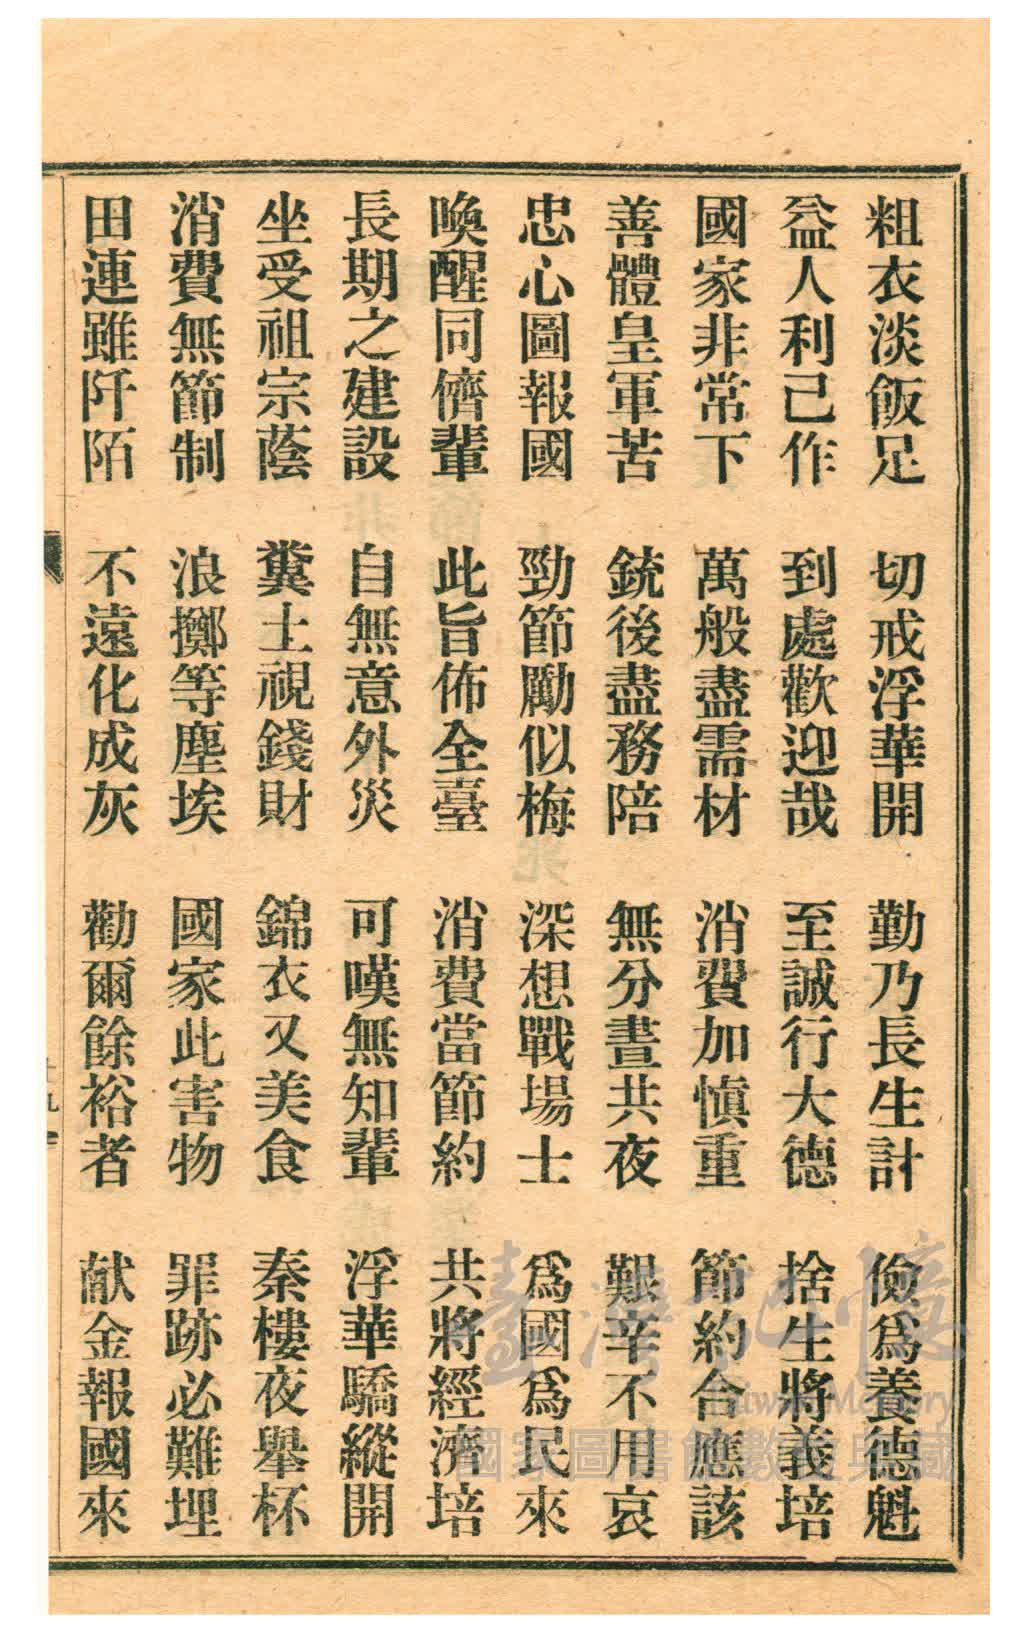 粗衣淡飯足　切戒浮華開　勤乃長生計　儉爲養德魁
益人利己作　到處歡迎哉　至誠行大德　捨生將義培
國家非常下　萬般盡需材　消費加慎重　節約合應該
善體皇軍苦　銃後盡務陪　無分晝共夜　艱辛不用哀
忠心圖報國　勁節勵似梅　深想戰場士　爲國爲民來
喚醒同儕輩　此旨佈全臺　消費當節約　共將經濟培
長期之建設　自無意外災　可嘆無知輩　浮華驕縱開
坐受祖宗蔭　糞土視錢財　錦衣又美食　秦樓夜舉杯
消費無節制　浪擲等塵埃　國家此害物　罪跡必難埋
田連雖阡陌　不遠化成灰　勸爾餘裕者　献金報國來
臺灣記憶
Taiwan Memory
國家圖書館數位典藏